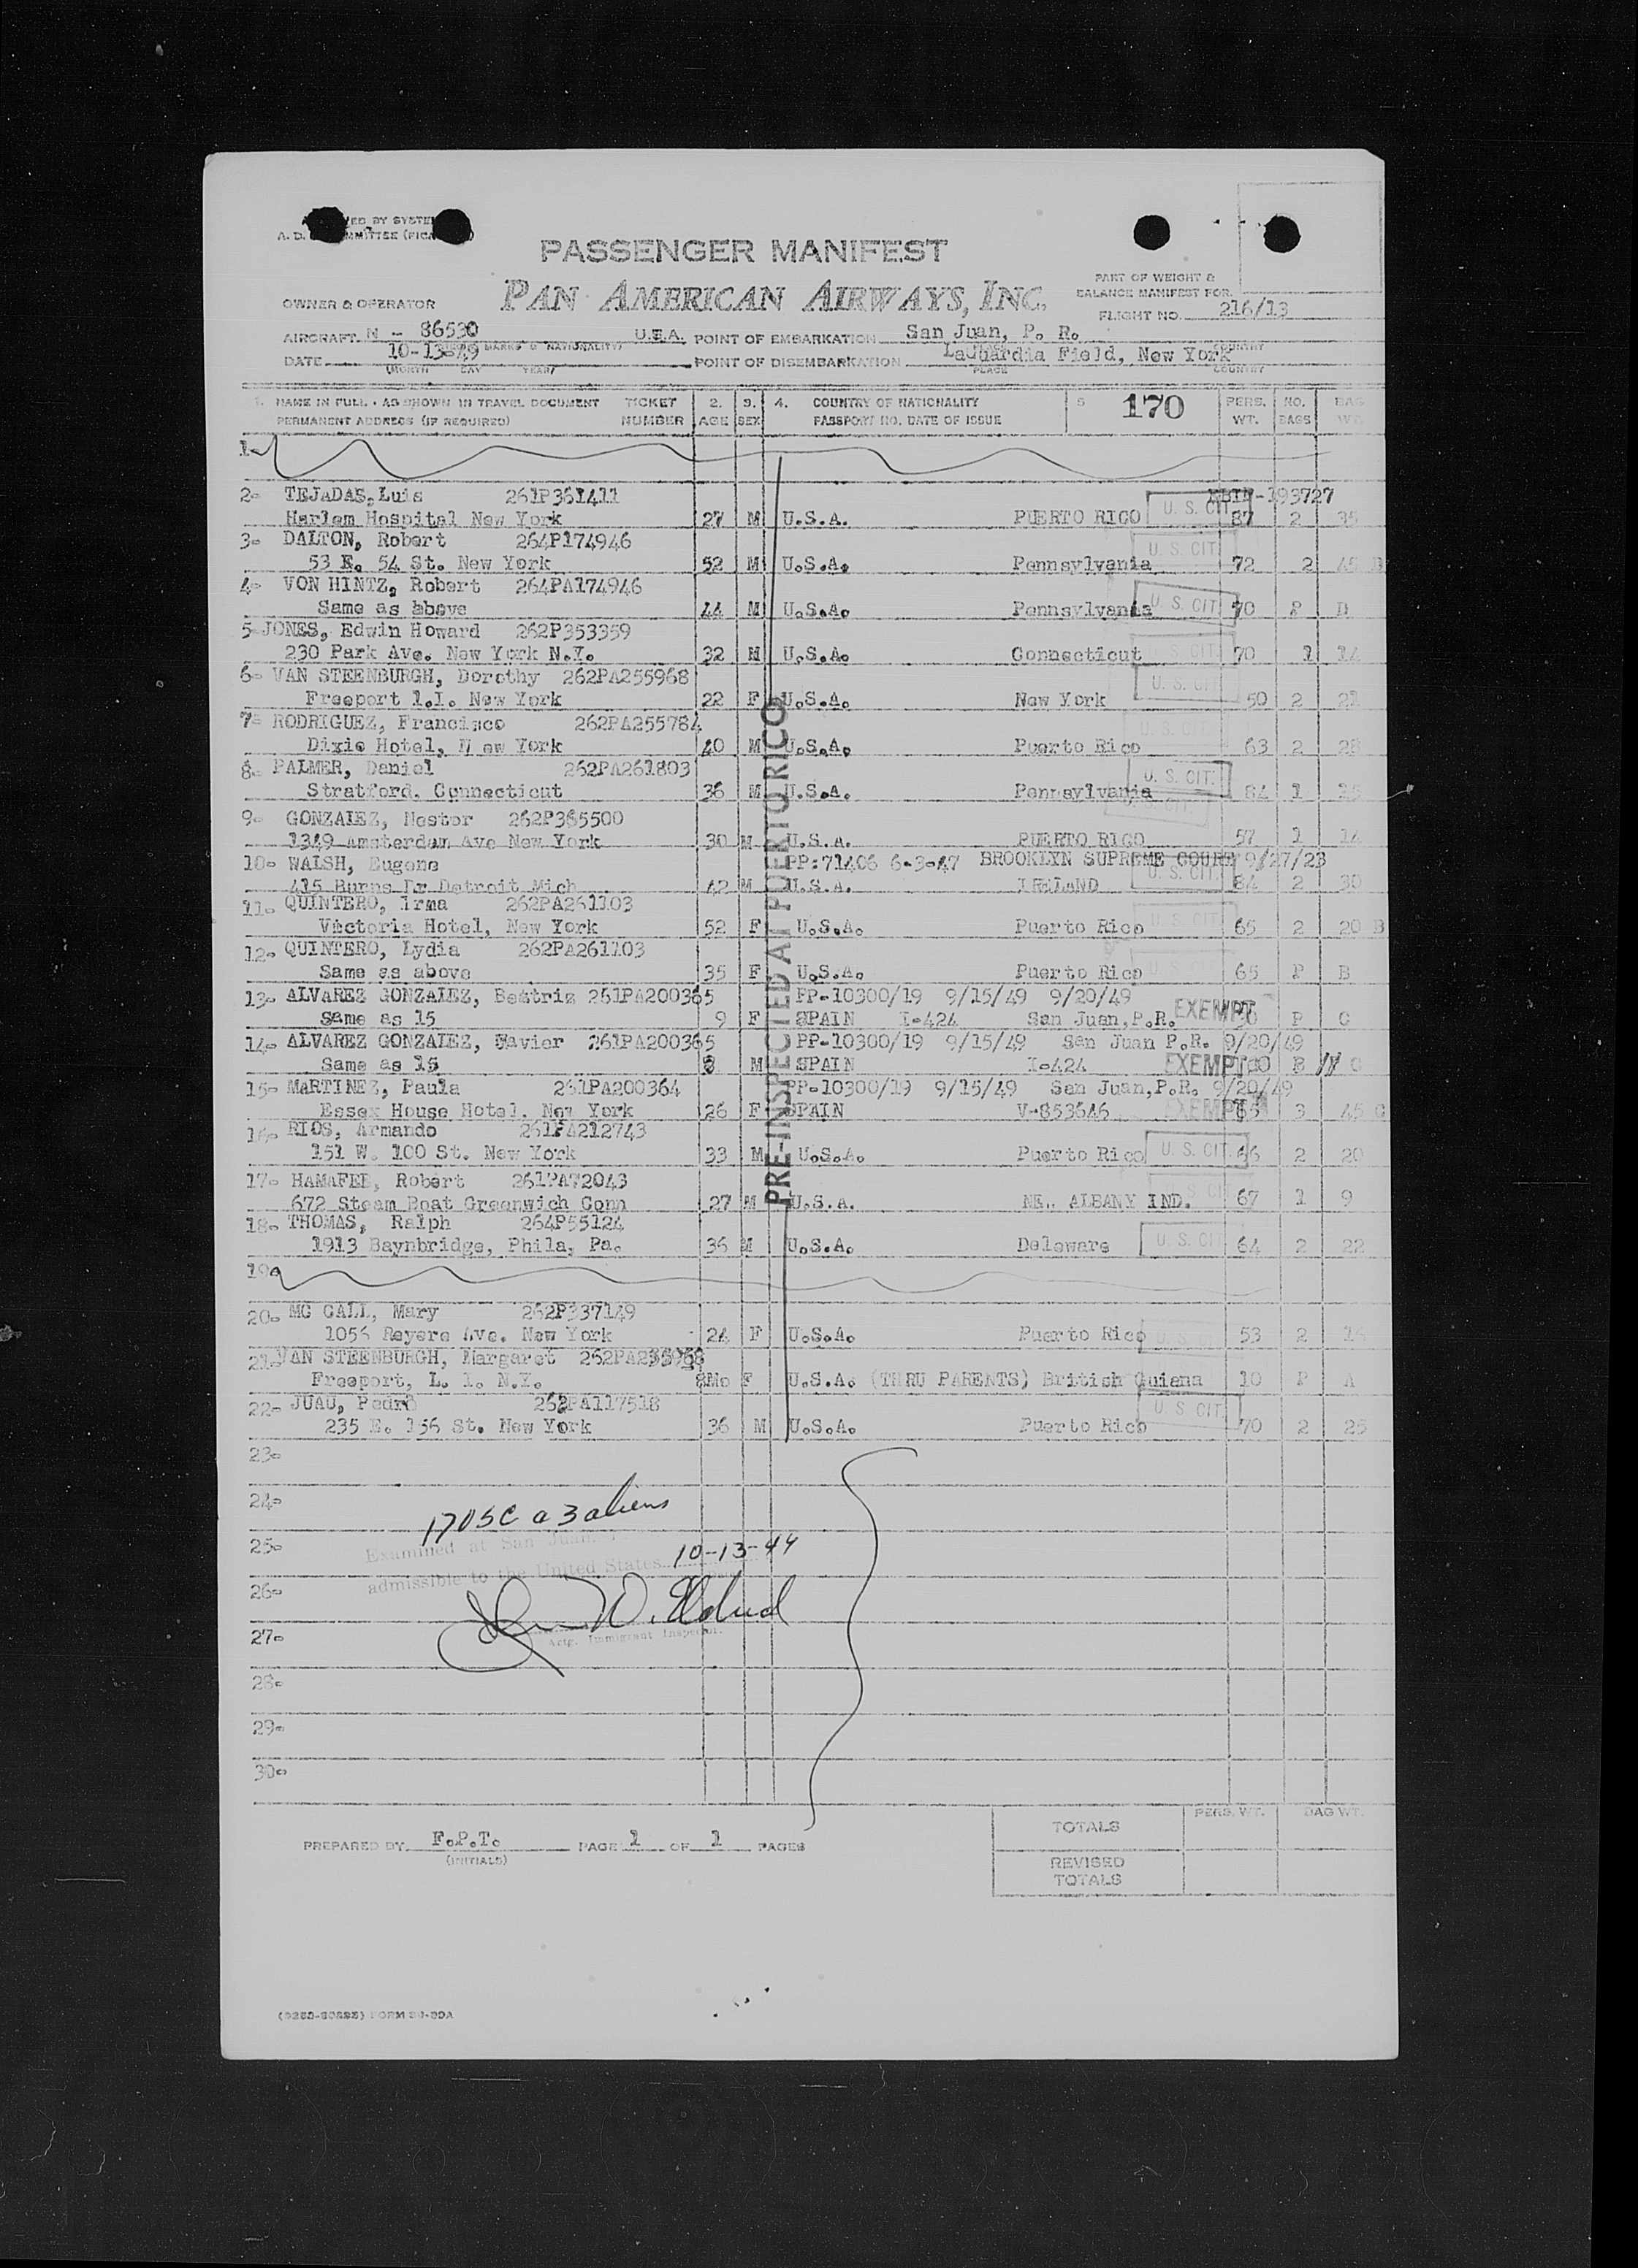 PASSENGER MANIFEST
PAN AMERICAN AIRWAYS, INC.
PART OF WEIGHT &
BALANCE MANIFEST FOR
OWNER & OPERATOR
FLIGHT NO. 216/13
AIRCRAFT N - 86530 U.S.A. POINT OF EMBARKATION San Juan, P. R.
DATE 10-13-49 POINT OF DISEMBARKATION LaGuardia Field, New York
(MONTH DAY YEAR) PLACE COUNTRY
1. NAME IN FULL - AS SHOWN IN TRAVEL DOCUMENT TICKET 2. 3. 4. COUNTRY OF NATIONALITY 5 170 PERS. NO. BAG
PERMANENT ADDRESS (IF REQUIRED) NUMBER AGE SEX PASSPORT NO. DATE OF ISSUE WT. BAGS WT.
1-
2- TEJADAS, Luis 261P361411
Harlem Hospital New York 27 M U.S.A. PUERTO RICO U. S. CIT 87 2 35
3- DALTON, Robert 264P174946 U. S. CIT.
53 E. 54 St. New York 52 M U.S.A. Pennsylvania 72 2 45 B
4- VON HINTZ, Robert 264PA174946
Same as above 44 M U.S.A. Pennsylvania U. S. CIT. 70 P B
5- JONES, Edwin Howard 262P353359
230 Park Ave. New York N.Y. 32 M U.S.A. Connecticut U. S. CIT. 70 1 14
6- VAN STEENBURGH, Dorothy 262PA255968 U. S. CIT.
Freeport l.I. New York 22 F U.S.A. New York 50 2 21
7- RODRIGUEZ, Francisco 262PA255784 U. S. CIT.
Dixie Hotel, N ew York 40 M U.S.A. Puerto Rico 63 2 28
8- PALMER, Daniel 262PA261803 U. S. CIT.
Stratford. Connecticut 36 M U.S.A. Pennsylvania 84 1 25
9- GONZALEZ, Nestor 262P365500
1349 Amsterdam Ave New York 30 M U.S.A. PUERTO RICO 57 1 14
10- WALSH, Eugene PP:71406 6-3-47 BROOKLYN SUPREME COURT 9/27/23
415 Burns Dr Detroit Mich 42 M U.S.A. IRELAND U. S. CIT. 84 2 30
11- QUINTERO, Irma 262PA261103
Victoria Hotel, New York 52 F U.S.A. Puerto Rico U. S. CIT. 65 2 20 B
12- QUINTERO, Lydia 262PA261103
Same as above 35 F U.S.A. Puerto Rico U. S. CIT. 65 P B
13- ALVAREZ GONZALEZ, Beatriz 261PA200365 PP-10300/19 9/15/49 9/20/49
Same as 15 9 F SPAIN I-424 San Juan, P.R. EXEMPT P C
14- ALVAREZ GONZALEZ, Xavier 261PA200365 PP-10300/19 9/15/49 San Juan P.R. 9/20/49
Same as 15 8 M SPAIN I-424 EXEMPT C
15- MARTINEZ, Paula 261PA200364 PP-10300/19 9/15/49 San Juan,P.R. 9/20/49
Essex House Hotel. New York 26 F SPAIN V-853646 EXEMPT 65 3 45 C
16- RIOS, Armando 261PA212743
151 W. 100 St. New York 33 M U.S.A. Puerto Rico U. S. CIT. 66 2 20
17- HANAFEE, Robert 261PA72043
672 Steam Boat Greenwich Conn 27 M U.S.A. NE.. ALBANY IND. 67 1 9
18- THOMAS, Ralph 264P55124
1913 Baynbridge, Phila, Pa. 36 M U.S.A. Delaware U. S. CIT 64 2 22
19-
20- MC CALL, Mary 262P337149
1056 Reyers Ave. New York 24 F U.S.A. Puerto Rico 53 2 14
21- VAN STEENBURGH, Margaret
Freeport, L. l. N.Y. 8Mo F U.S.A. (THRU PARENTS) British Guiana 10 P A
22- JUAU, Pedro 262PA117518 U. S. CIT.
235 E. 156 St. New York 36 M U.S.A. Puerto Rico 70 2 25
PRE-INSPECTED AT PUERTO RICO
23-
24-
3 aliens
25- Examined at San Juan 10-13-49
26- admissible to the United States
27- Actg. Immigrant Inspector.
28-
29-
30-
PREPARED BY F.P.T. PAGE 1 OF 1 PAGES
(INITIALS)
PERS. WT. BAG WT.
TOTALS
REVISED
TOTALS